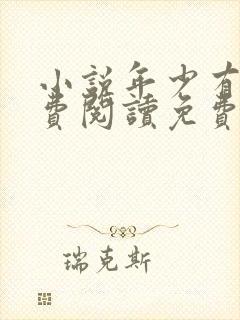 小說年少有
費閱讀免費
瑞克斯